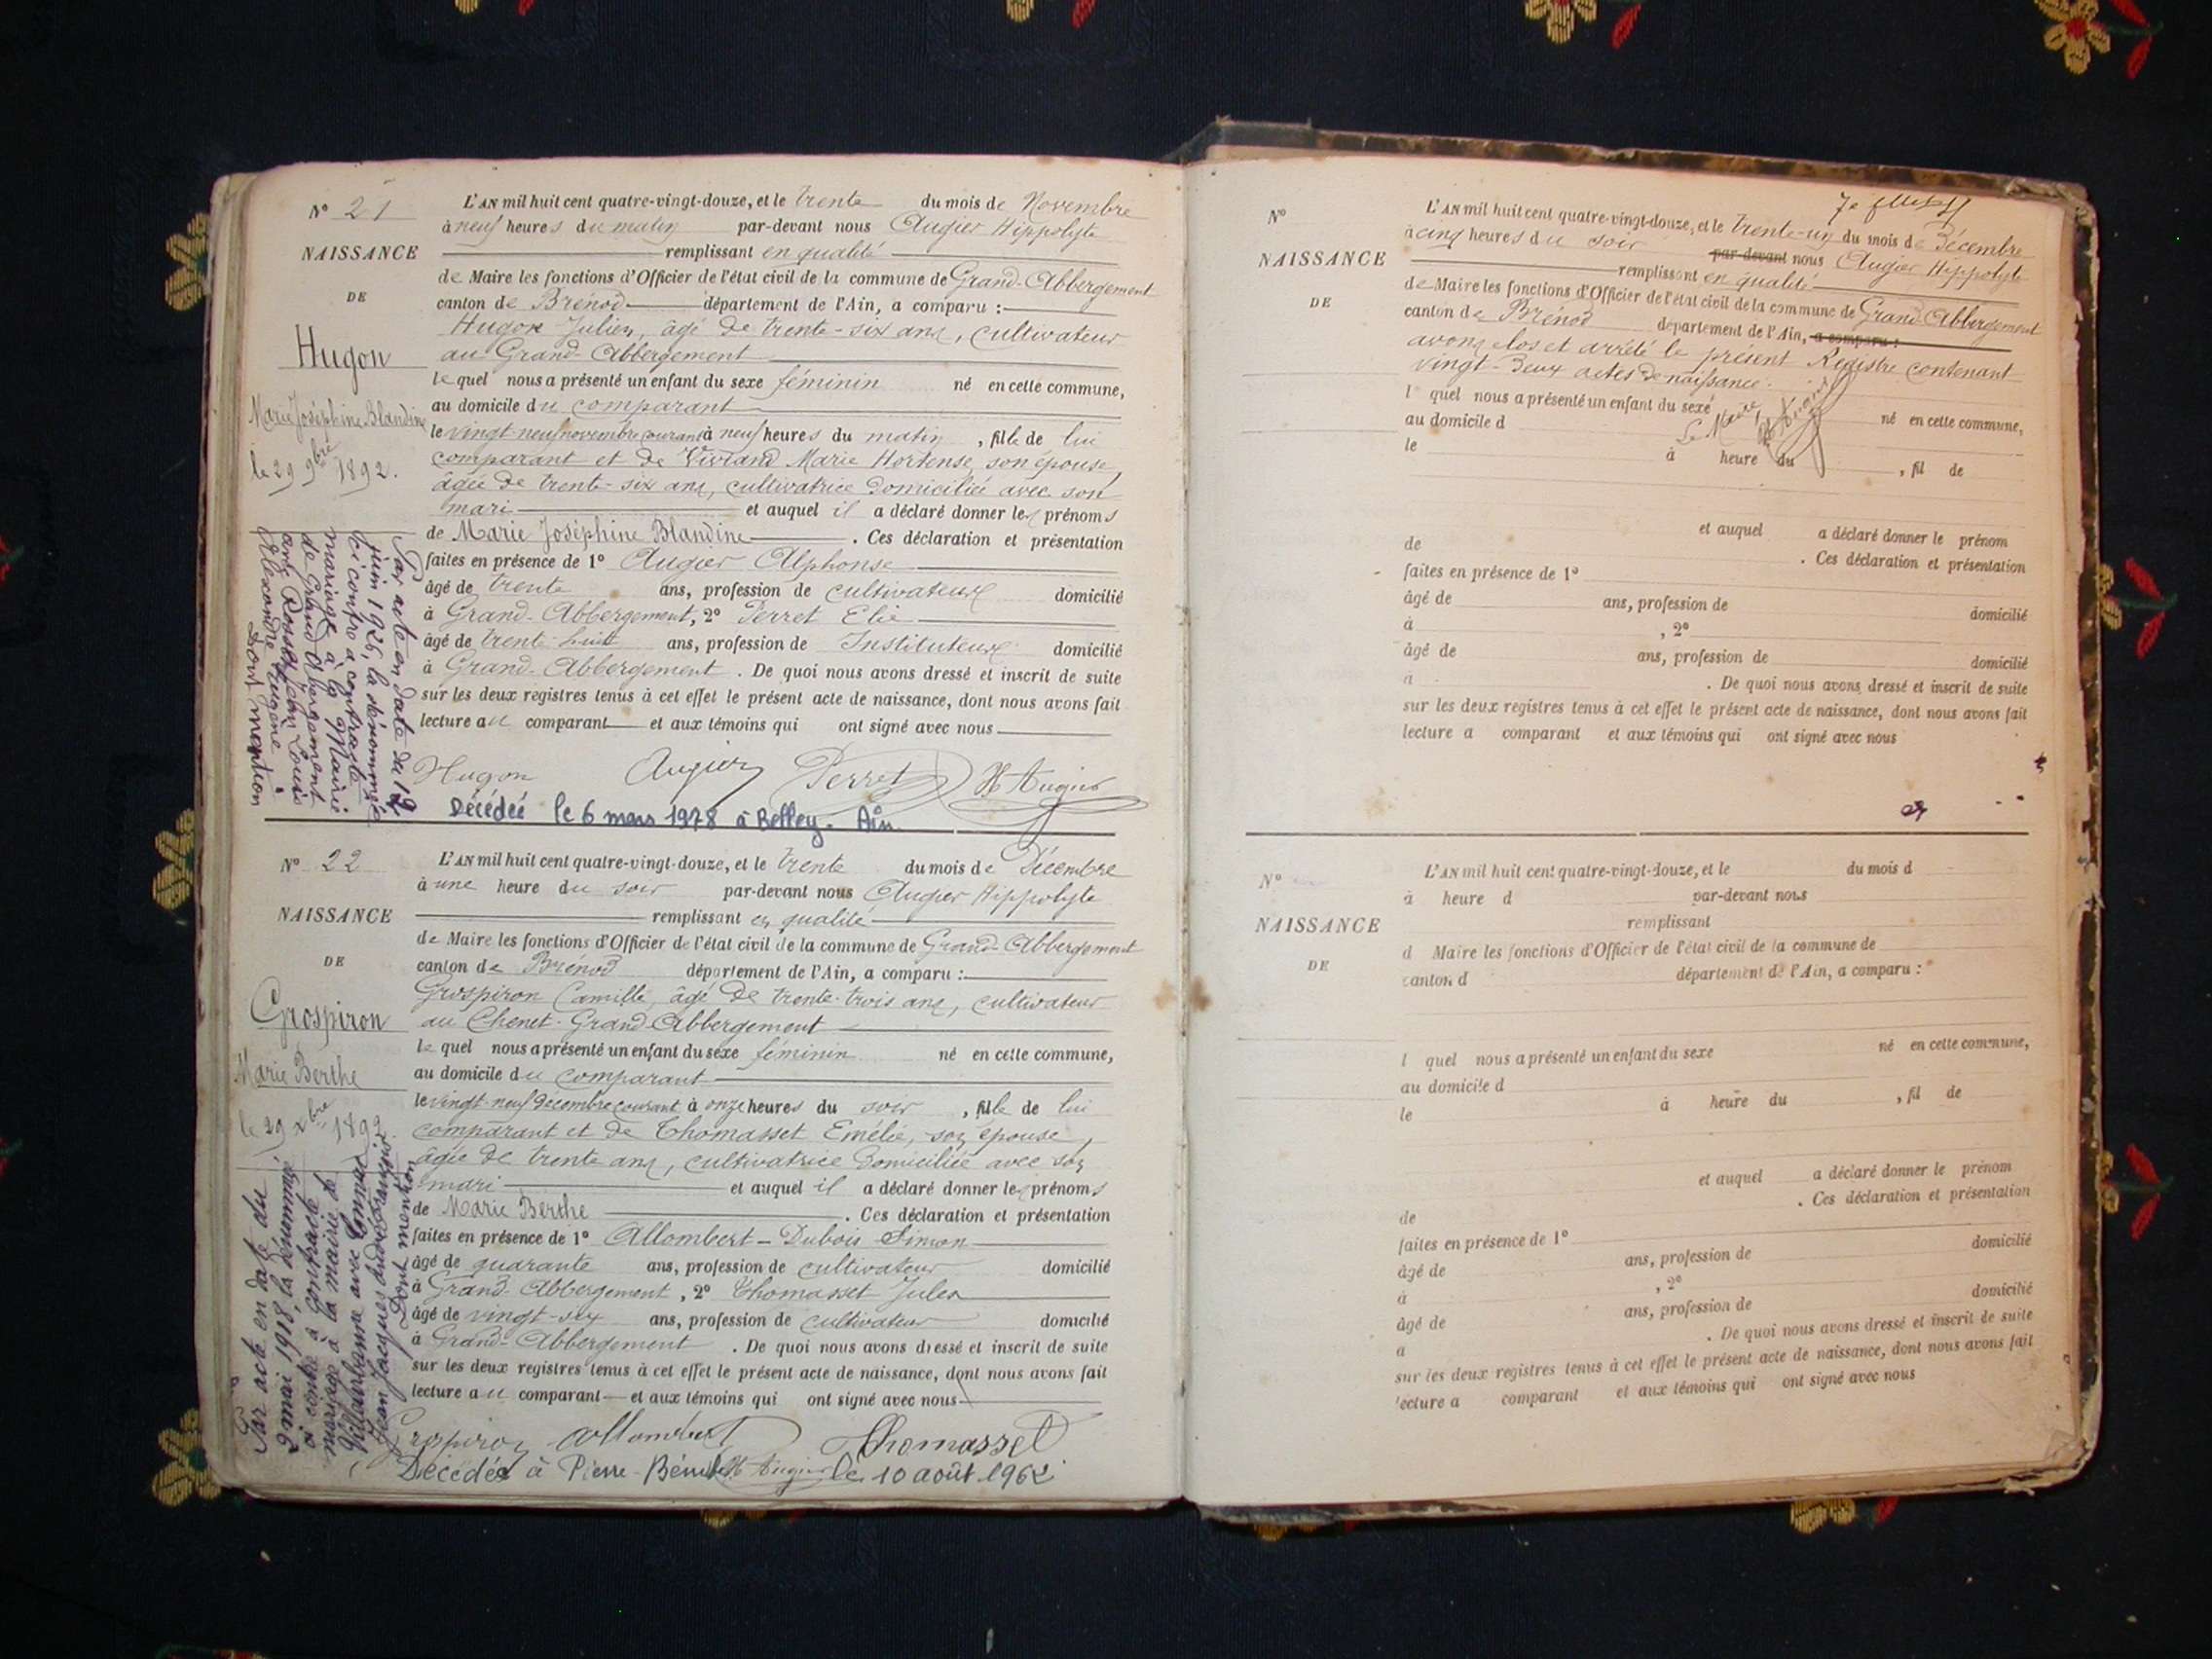 N° 21
NAISSANCE
DE
Hugon
Marie Joséphine Blandine
le 29 9bre 1892.
Par acte en date du 12
juin 1926, la dénommée
ci contre a contracté
mariage à la Mairie
de Grand Abergement
avec Jean Louis
Alexandre Eugène
Dont mention
L'AN mil huit cent quatre-vingt-douze, et le trente du mois de Novembre
à neuf heures du matin par-devant nous Augier Hippolyte
remplissant en qualité
de Maire les fonctions d'Officier de l'état civil de la commune de Grand-Abbergement
canton de Brénod département de l'Ain, a comparu :
Hugon Julien, âgé de trente-six ans, cultivateur
au Grand-Abbergement
lequel nous a présenté un enfant du sexe féminin né en cette commune,
au domicile du comparant
le vingt-neuf novembre courant à neuf heures du matin, fille de lui
comparant et de Viviand Marie Hortense, son épouse,
âgée de trente-six ans, cultivatrice domiciliée avec son
mari et auquel il a déclaré donner les prénoms
de Marie Joséphine Blandine. Ces déclaration et présentation
faites en présence de 1° Augier Alphonse
âgé de trente ans, profession de cultivateur domicilié
à Grand-Abbergement, 2° Perret Elie
âgé de trente-huit ans, profession de Instituteur domicilié
à Grand-Abbergement. De quoi nous avons dressé et inscrit de suite
sur les deux registres tenus à cet effet le présent acte de naissance, dont nous avons fait
lecture au comparant et aux témoins qui ont signé avec nous
Hugon Augier Perret H Augier
Décédée le 6 mars 1978 à Belley. Ain.
N° 22
NAISSANCE
DE
Grospiron
Marie Berthe
le 29 Xbre 1892.
Par acte en date du
2 mai 1918, la dénommée
ci contre a contracté
mariage à la mairie de
Villeurbanne avec
Jean Jacques
Dont mention
L'AN mil huit cent quatre-vingt-douze, et le trente du mois de Décembre
à une heure du soir par-devant nous Augier Hippolyte
remplissant en qualité
de Maire les fonctions d'Officier de l'état civil de la commune de Grand-Abbergement
canton de Brénod département de l'Ain, a comparu :
Grospiron Camille, âgé de trente-trois ans, cultivateur
au Chenet-Grand-Abbergement
lequel nous a présenté un enfant du sexe féminin né en cette commune,
au domicile du comparant
le vingt-neuf décembre courant à onze heures du soir, fille de lui
comparant et de Thomasset Emélie, son épouse,
âgée de trente ans, cultivatrice domiciliée avec son
mari et auquel il a déclaré donner les prénoms
de Marie Berthe. Ces déclaration et présentation
faites en présence de 1° Allombert-Dubois Simon
âgé de quarante ans, profession de cultivateur domicilié
à Grand-Abbergement, 2° Thomasset Jules
âgé de vingt-six ans, profession de cultivateur domicilié
à Grand-Abbergement. De quoi nous avons dressé et inscrit de suite
sur les deux registres tenus à cet effet le présent acte de naissance, dont nous avons fait
lecture au comparant et aux témoins qui ont signé avec nous
Grospiron Allombert Thomasset
Décédée à Pierre-Bénite H Augier le 10 août 1962
N°
NAISSANCE
DE
L'AN mil huit cent quatre-vingt-douze, et le trente-un du mois de Décembre
à cinq heures du soir par-devant nous Augier Hippolyte
remplissant en qualité
de Maire les fonctions d'Officier de l'état civil de la commune de Grand-Abbergement
canton de Brénod département de l'Ain, a comparu :
avons clos et arrêté le présent Registre contenant
vingt-deux actes de naissance.
Le Maire, H Augier
l quel nous a présenté un enfant du sexe né en cette commune,
au domicile d
le à heure du , fil de
et auquel a déclaré donner le prénom
de . Ces déclaration et présentation
faites en présence de 1°
âgé de ans, profession de domicilié
à , 2°
âgé de ans, profession de domicilié
à . De quoi nous avons dressé et inscrit de suite
sur les deux registres tenus à cet effet le présent acte de naissance, dont nous avons fait
lecture a comparant et aux témoins qui ont signé avec nous
N°
NAISSANCE
DE
L'AN mil huit cent quatre-vingt-douze, et le du mois d
à heure d par-devant nous
remplissant
d Maire les fonctions d'Officier de l'état civil de la commune de
canton d département de l'Ain, a comparu :
l quel nous a présenté un enfant du sexe né en cette commune,
au domicile d
le à heure du , fil de
et auquel a déclaré donner le prénom
de . Ces déclaration et présentation
faites en présence de 1°
âgé de ans, profession de domicilié
à , 2°
âgé de ans, profession de domicilié
à . De quoi nous avons dressé et inscrit de suite
sur les deux registres tenus à cet effet le présent acte de naissance, dont nous avons fait
lecture a comparant et aux témoins qui ont signé avec nous